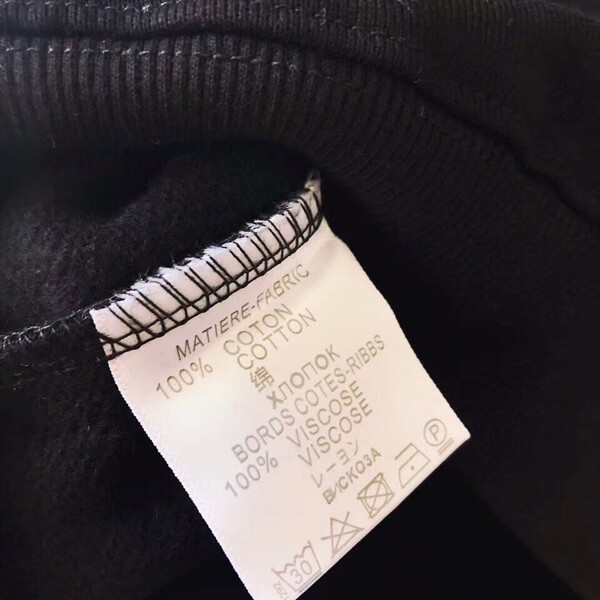 MATIERE-FABRIC
100% COTON
COTTON
綿
ХЛОПОК
BORDS COTES-RIBBS
100% VISCOSE
VISCOSE
レーヨン
ВИСКОЗА
30
P